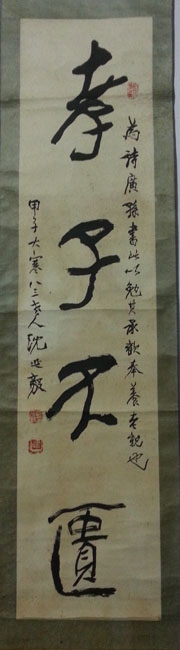 孝子不匱
為詩廣孫書此以勉其承歡奉養吉親也
甲子大寒八三老人沈延毅